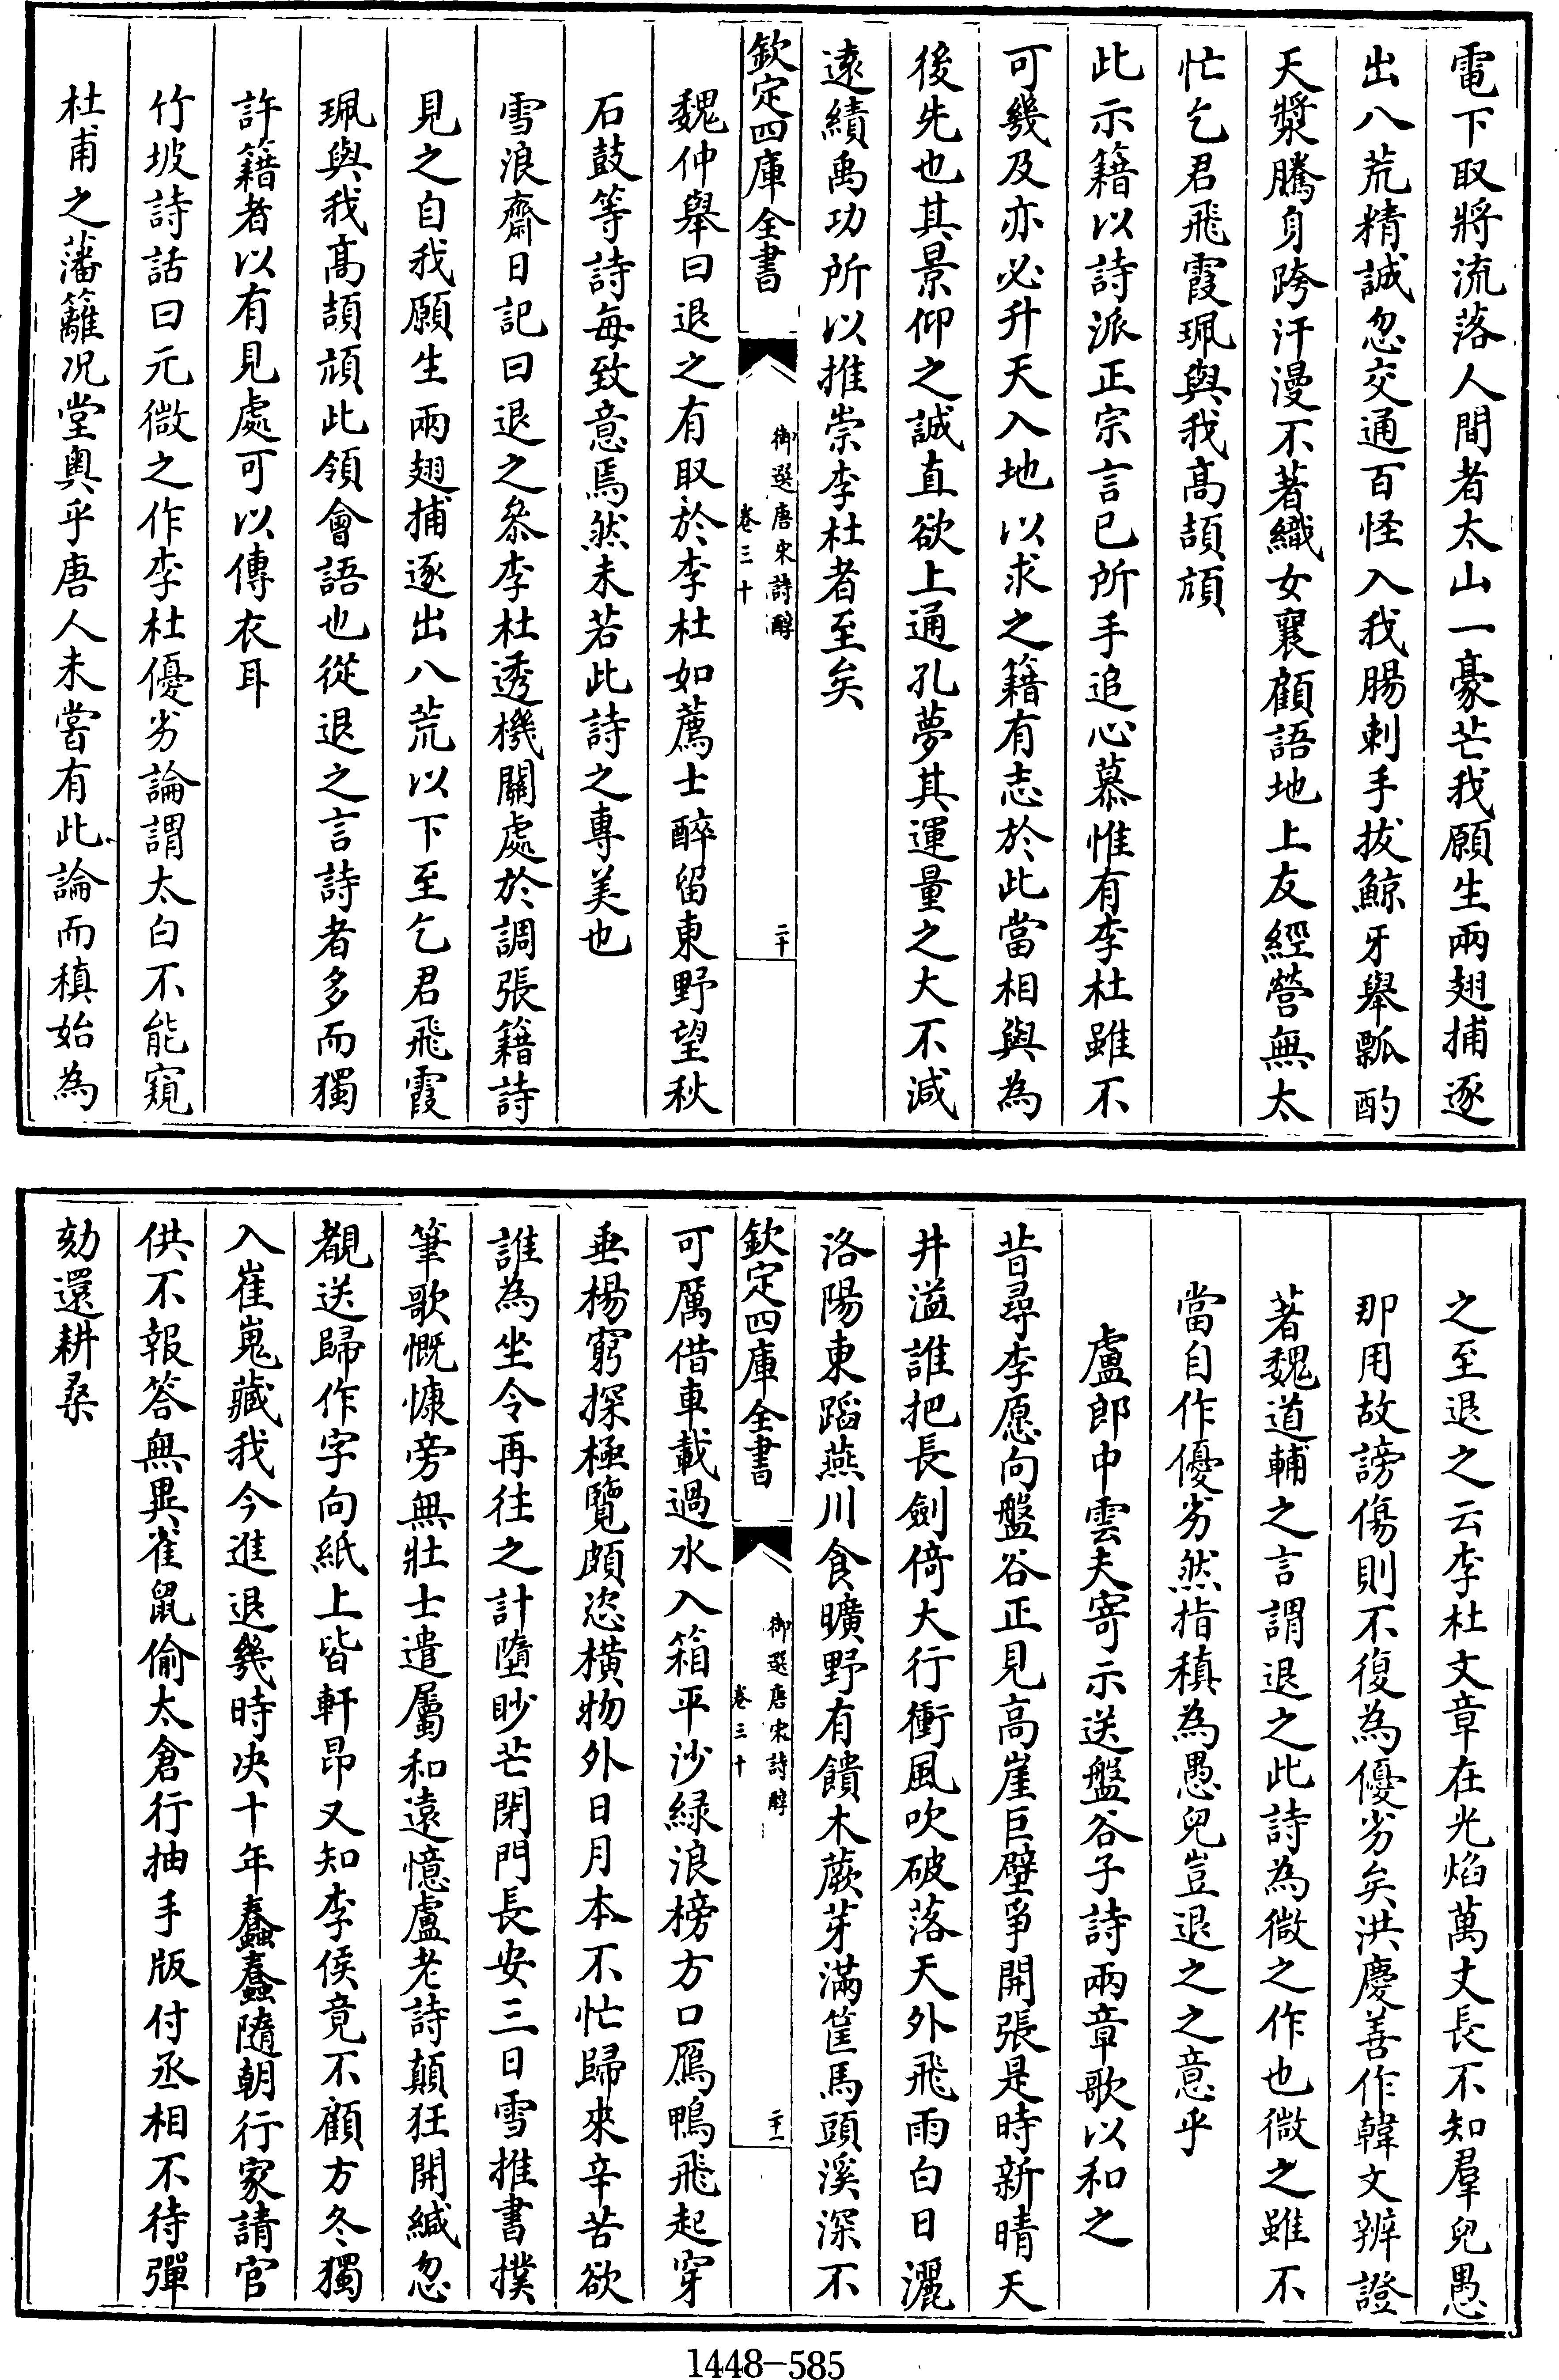 電下取將流落人間者太山一豪芒我願生兩翅捕逐
出八荒精誠忽交通百怪入我腸刺手拔鯨牙舉瓢酌
天漿騰身跨汗漫不著織女襄顧語地上友經營無太
忙乞君飛霞珮與我高頡頏
此示籍以詩派正宗言已所手追心慕惟有李杜雖不
可幾及亦必升天入地以求之籍有志於此當相與為
後先也其景仰之誠直欲上通孔夢其運量之大不減
遠績禹功所以推崇李杜者至矣
欽定四庫全書
御選唐宋詩醇
卷三十
二十
魏仲舉曰退之有取於李杜如薦士醉留東野望秋
石鼓等詩每致意焉然未若此詩之專美也
雪浪齋日記曰退之叅李杜透機關處於調張籍詩
見之自我願生兩翅捕逐出八荒以下至乞君飛霞
珮與我高頡頏此領會語也從退之言詩者多而獨
許籍者以有見處可以傳衣耳
竹坡詩話曰元微之作李杜優劣論謂太白不能窺
杜甫之藩籬況堂奧乎唐人未嘗有此論而稹始為
之至退之云李杜文章在光焰萬丈長不知羣兒愚
那用故謗傷則不復為優劣矣洪慶善作韓文辨證
著魏道輔之言謂退之此詩為微之作也微之雖不
當自作優劣然指稹為愚兒豈退之之意乎
盧郎中雲夫寄示送盤谷子詩兩章歌以和之
昔尋李愿向盤谷正見高崖巨壁爭開張是時新晴天
井溢誰把長劍倚太行衝風吹破落天外飛雨白日灑
洛陽東蹈燕川食曠野有饋木蕨芽滿筐馬頭溪深不
欽定四庫全書
御選唐宋詩醇
卷三十
二十一
可厲借車載過水入箱平沙綠浪榜方口鴈鴨飛起穿
垂楊窮探極覽頗恣橫物外日月本不忙歸來辛苦欲
誰為坐令再往之計墮眇芒閉門長安三日雪推書撲
筆歌慨慷旁無壯士遣屬和遠憶盧老詩顛狂開緘忽
覩送歸作字向紙上皆軒昂又知李侯竟不顧方冬獨
入崔嵬藏我今進退幾時决十年蠢蠢隨朝行家請官
供不報答無異雀鼠偷太倉行抽手版付丞相不待彈
劾還耕桑
1448-585